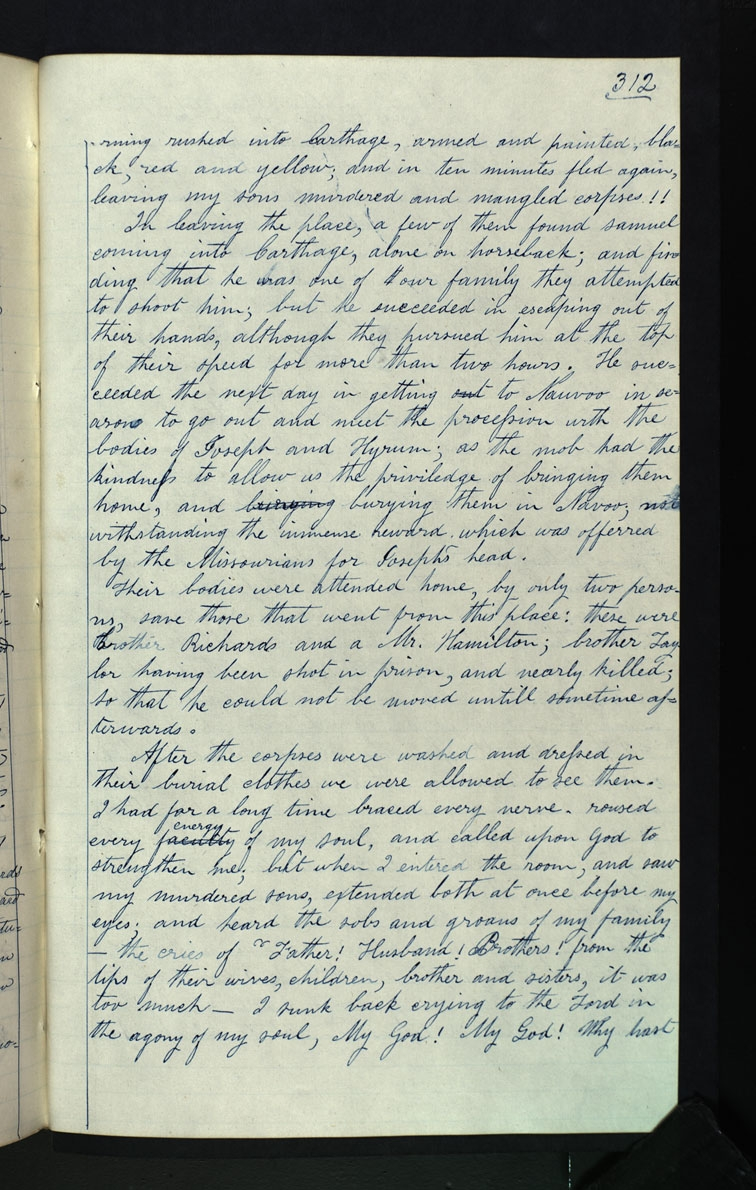 312
rning rushed into Carthage, armed and painted, bla-
ck, red and yellow; and in ten minutes fled again,
leaving my sons murdered and mangled corpses!!
In leaving the place, a few of them found samuel
coming into Carthage, alone on horseback; and fin-
ding that he was one of our family they attempted
to shoot him; but he succeeded in escaping out of
their hands, although they pursued him at the top
of their speed for more than two hours. He suc=
ceeded the next day in getting out to Nauvoo in se=
ason to go out and meet the procession with the
bodies of Joseph and Hyrum; as the mob had the
kindness to allow us the priviledge of bringing them
home, and bringing burying them in Navoo; not
withstanding the immense reward which was offerred
by the Missourians for Joseph's head.
Their bodies were attended home, by only two perso-
ns, save those that went from this place: these were
Brother Richards and a Mr. Hamilton; brother Tay
lor having been shot in prison, and nearly killed;
so that he could not be moved untill sometime af=
terwards.
After the corpses were washed and dressed in
their burial clothes we were allowed to see them.
I had for a long time braced every nerve. roused
energy
every faculty of my soul, and called upon God to
strengthen me; but when I entered the room, and saw
my murdered sons, extended both at once before my
eyes; and heard the sobs and groans of my family
— the cries of "Father! Husband! Brothers! from the
lips of their wives, children, brother and sisters, it was
too much — I sunk back crying to the Lord in
the agony of my soul, My God! My God! Why hast